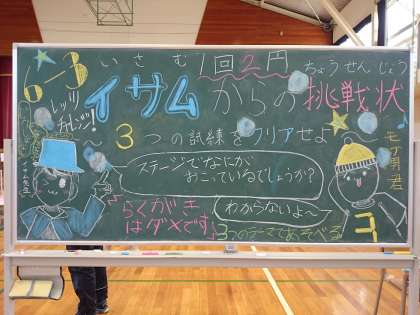 6-3
いさむ
1回2円
ちょうせんじょう
レッツ
チャレンジ!
イサムからの挑戦状
3つの試練をクリアせよ
モブ男君
ステージでなにが
おこっているでしょうか?
わからないよ〜
「らくがき
はダメです」
3つのテーマであそべる